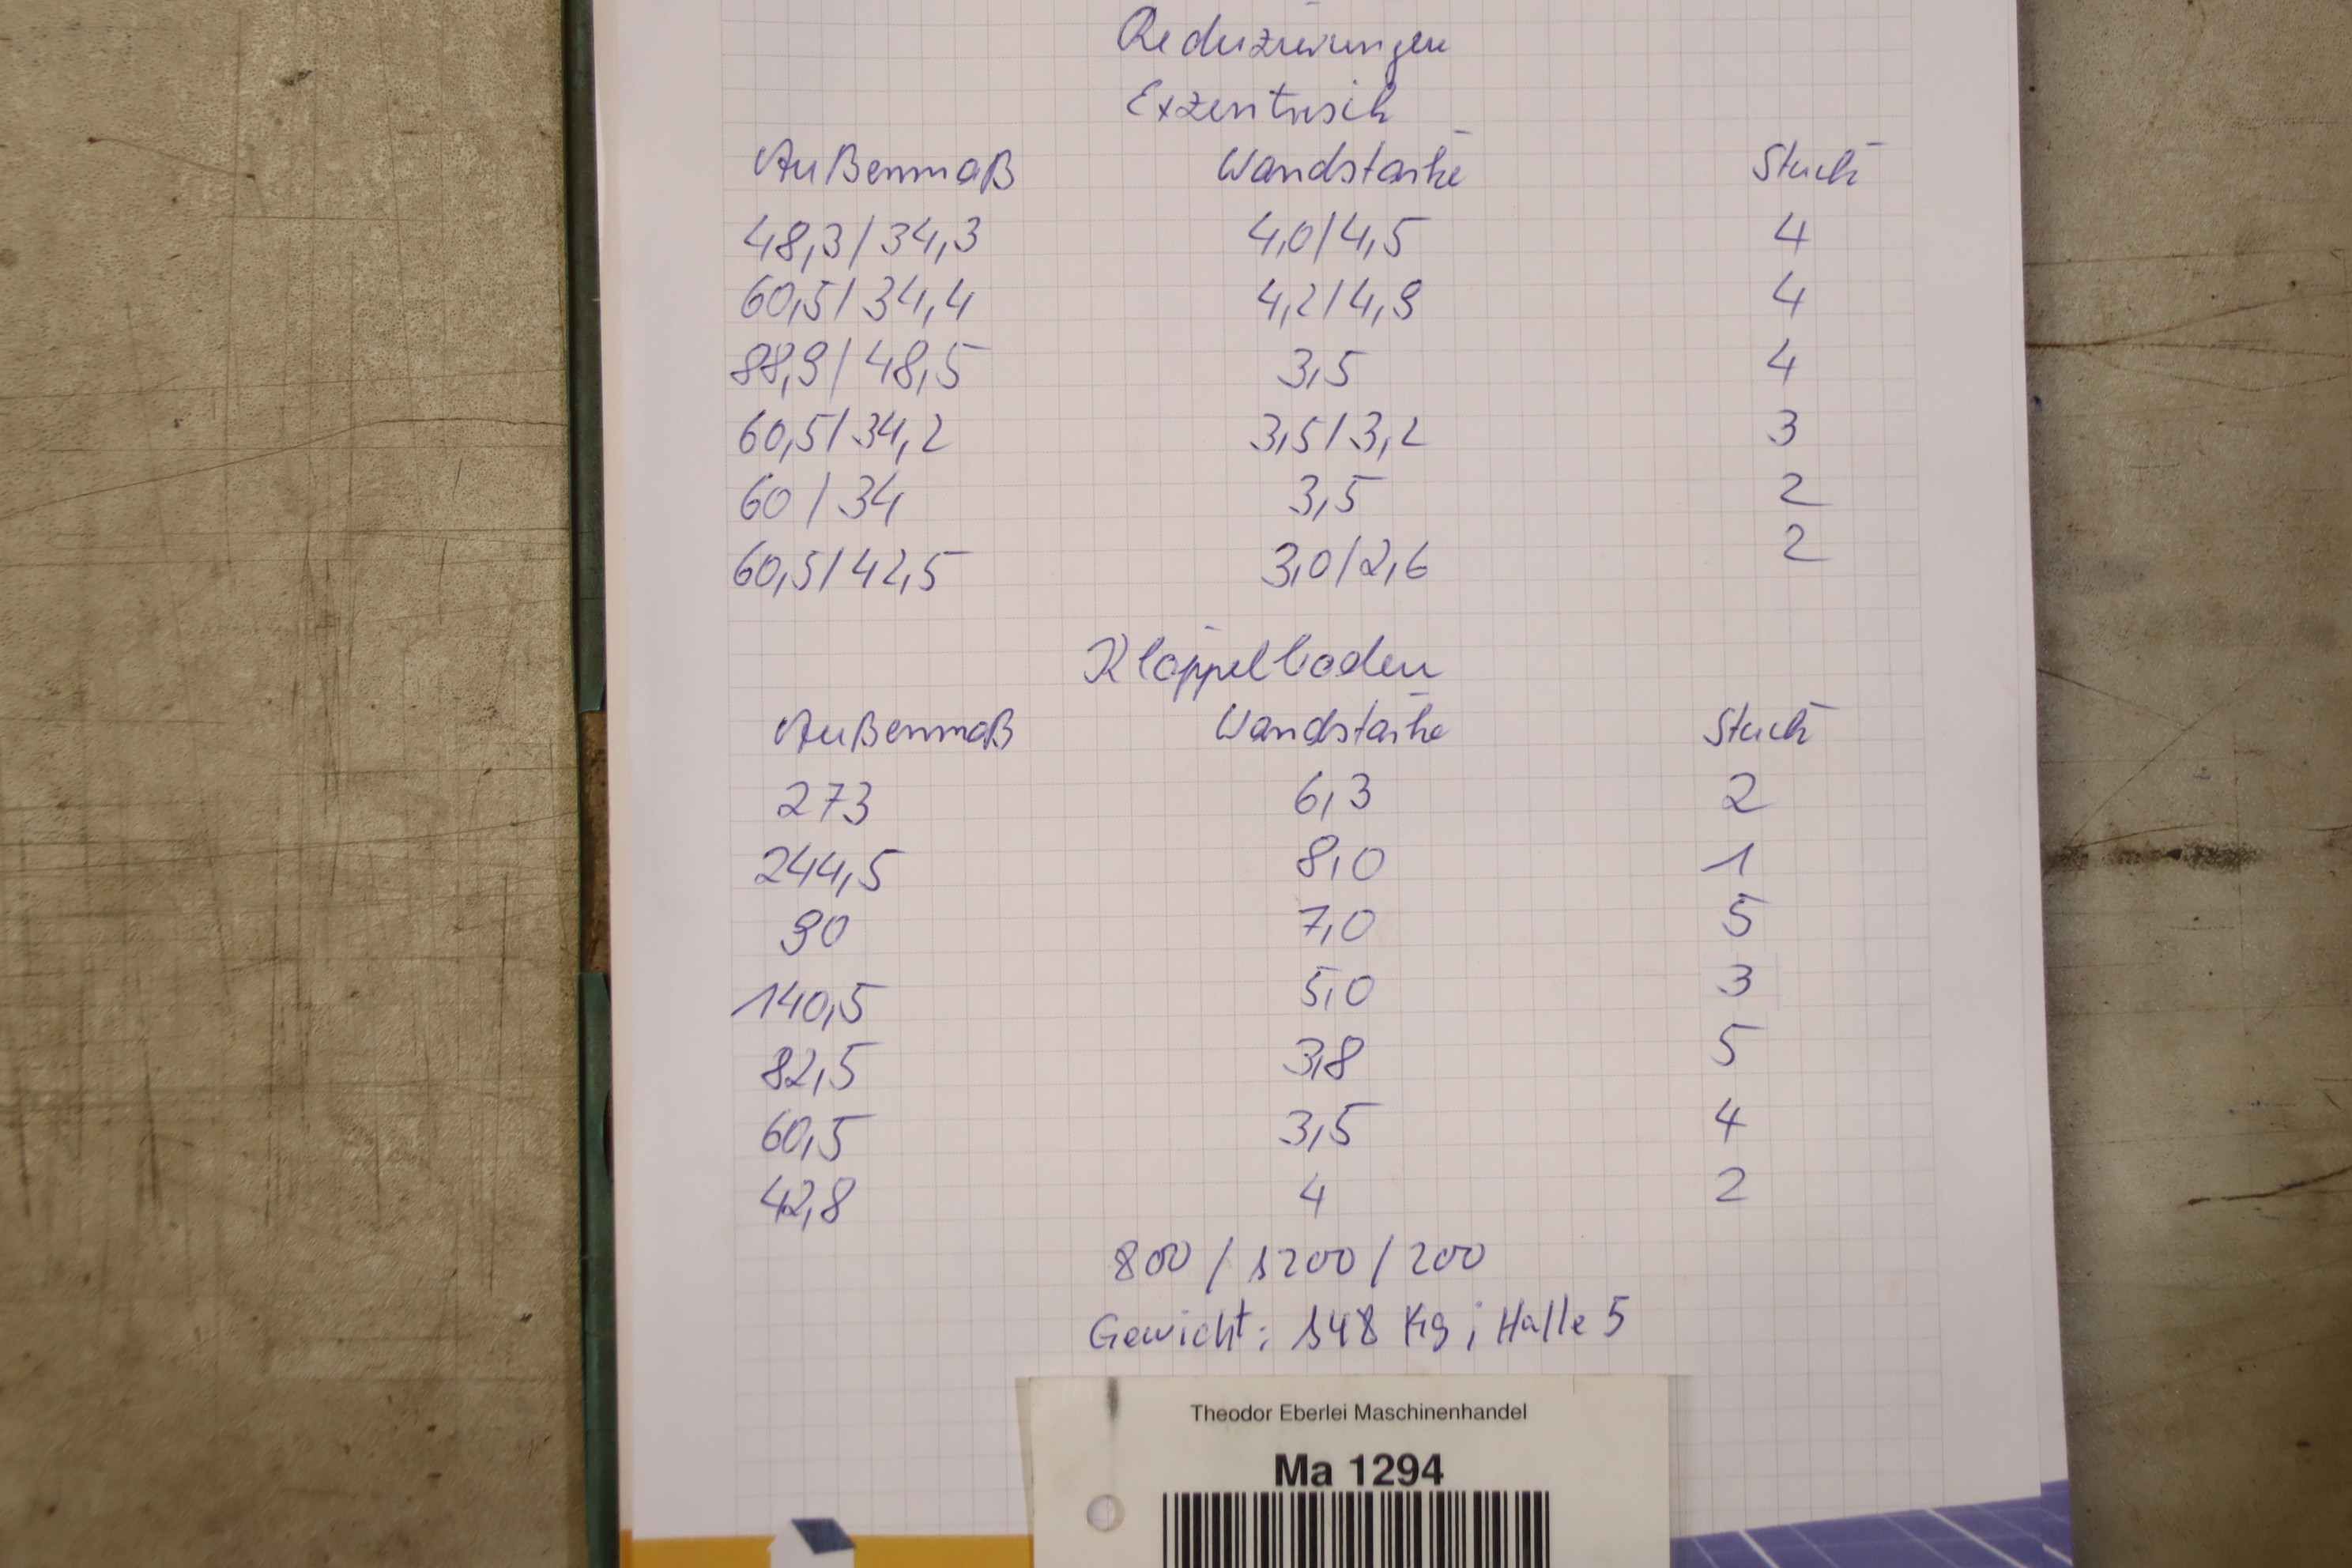 Reduzierungen
Exzentrisch
Außenmaß Wandstärke Stück
48,3/34,3 4,0/4,5 4
60,5/34,4 4,2/4,9 4
88,9/48,5 3,5 4
60,5/34,2 3,5/3,2 3
60/34 3,5 2
60,5/42,5 3,0/2,6 2
Klöpperboden
Außenmaß Wandstärke Stück
273 6,3 2
244,5 8,0 1
90 7,0 5
140,5 5,0 3
82,5 3,8 5
60,5 3,5 4
42,8 4 2
800/1200/200
Gewicht: 148 Kg; Halle 5
Theodor Eberlei Maschinenhandel
Ma 1294